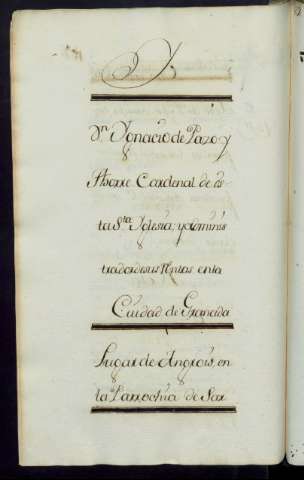 Dn. Ygnacio de Pazo y
Cardenal de es-
ta Sta. Yglesia, y Adminis
trador de sus Rentas en la
Ciudad de Granada
Lugar de Angrois, en
la Parrochia de Sar